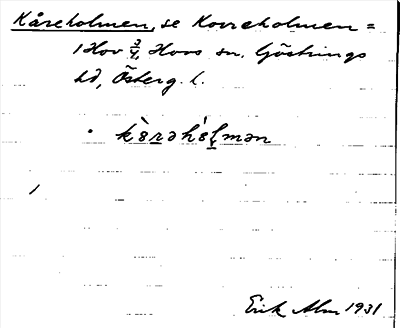 Kåreholmen, se Korreholmen =
1 Hov 3/4, Hovs sn, Göstrings
hd, Österg. l.
• kèrəhólmən
/
Erik Alm 1931